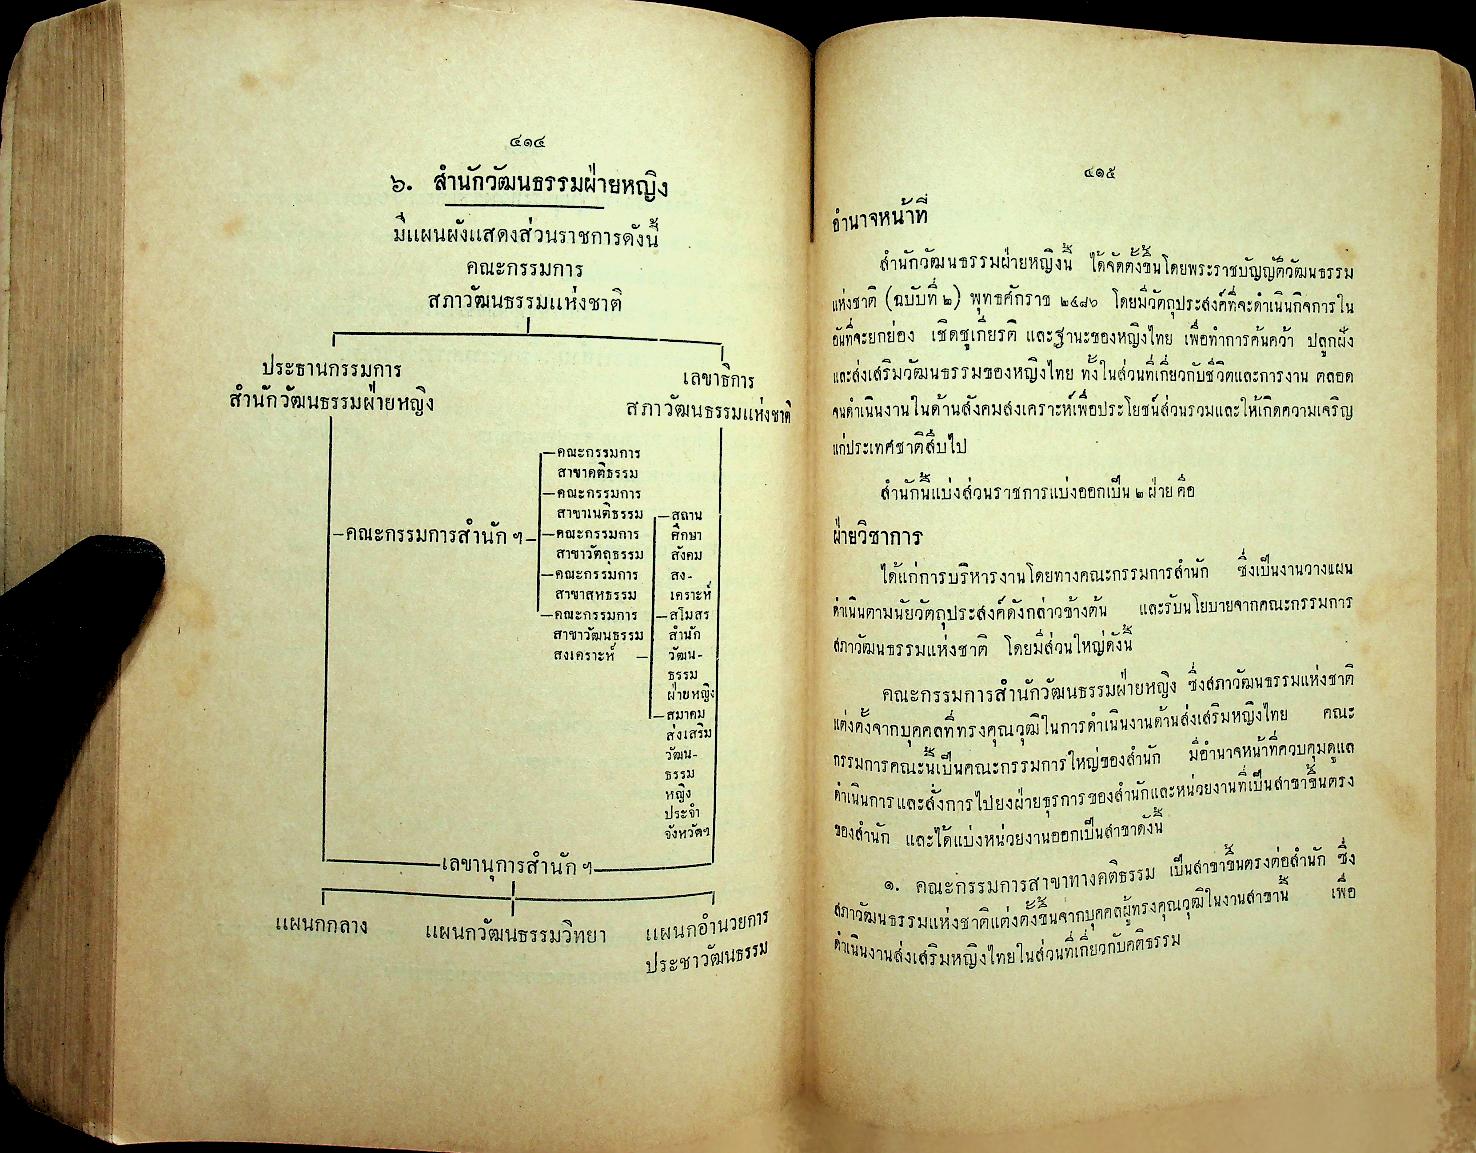 ๔๑๔
๖. สำนักวัฒนธรรมฝ่ายหญิง
มีแผนผังแสดงส่วนราชการดังนี้
คณะกรรมการ
สภาวัฒนธรรมแห่งชาติ
ประธานกรรมการ
สำนักวัฒนธรรมฝ่ายหญิง
เลขาธิการ
สภาวัฒนธรรมแห่งชาติ
คณะกรรมการสำนัก ฯ
คณะกรรมการ
สาขาคติธรรม
คณะกรรมการ
สาขาเนติธรรม
คณะกรรมการ
สาขาวัตถุธรรม
คณะกรรมการ
สาขาสหธรรม
คณะกรรมการ
สาขาวัฒนธรรม
สงเคราะห์
สถาน
ศึกษา
สังคม
สง-
เคราะห์
สโมสร
สำนัก
วัฒน-
ธรรม
ฝ่ายหญิง
สมาคม
ส่งเสริม
วัฒน-
ธรรม
หญิง
ประจำ
จังหวัดฯ
เลขานุการสำนัก ฯ
แผนกกลาง
แผนกวัฒนธรรมวิทยา
แผนกอำนวยการ
ประชาวัฒนธรรม
๔๑๕
อำนาจหน้าที่
สำนักวัฒนธรรมฝ่ายหญิงนี้ ได้จัดตั้งขึ้นโดยพระราชบัญญัติวัฒนธรรม
แห่งชาติ (ฉบับที่ ๒) พุทธศักราช ๒๔๘๖ โดยมีวัตถุประสงค์ที่จะดำเนินกิจการใน
อันที่จะยกย่อง เชิดชูเกียรติ และฐานะของหญิงไทย เพื่อทำการค้นคว้า ปลูกฝัง
และส่งเสริมวัฒนธรรมของหญิงไทย ทั้งในส่วนที่เกี่ยวกับชีวิตและการงาน ตลอด
จนดำเนินงานในด้านสังคมสงเคราะห์เพื่อประโยชน์ส่วนรวมและให้เกิดความเจริญ
แก่ประเทศชาติสืบไป
สำนักนี้แบ่งส่วนราชการแบ่งออกเป็น ๒ ฝ่าย คือ
ฝ่ายวิชาการ
ได้แก่การบริหารงานโดยทางคณะกรรมการสำนัก ซึ่งเป็นงานวางแผน
ดำเนินตามนัยวัตถุประสงค์ดังกล่าวข้างต้น และรับนโยบายจากคณะกรรมการ
สภาวัฒนธรรมแห่งชาติ โดยมีส่วนใหญ่ดังนี้
คณะกรรมการสำนักวัฒนธรรมฝ่ายหญิง ซึ่งสภาวัฒนธรรมแห่งชาติ
แต่งตั้งจากบุคคลที่ทรงคุณวุฒิในการดำเนินงานด้านส่งเสริมหญิงไทย คณะ
กรรมการคณะนี้เป็นคณะกรรมการใหญ่ของสำนัก มีอำนาจหน้าที่ควบคุมดูแล
ดำเนินการและสั่งการไปยงฝ่ายธุรการของสำนักและหน่วยงานที่เป็นสาขาขึ้นตรง
ของสำนัก และได้แบ่งหน่วยงานออกเป็นสาขาดังนี้
๑. คณะกรรมการสาขาทางคติธรรม เป็นสาขาขึ้นตรงต่อสำนัก ซึ่ง
สภาวัฒนธรรมแห่งชาติแต่งตั้งขึ้นจากบุคคลผู้ทรงคุณวุฒิในงานสาขานี้ เพื่อ
ดำเนินงานส่งเสริมหญิงไทยในส่วนที่เกี่ยวกับคติธรรม